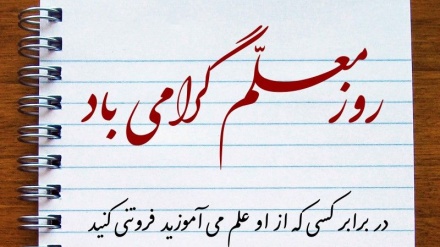 روز معلّم گرامی باد
در برابر کسی که از او علم می آموزید فروتنی کنید